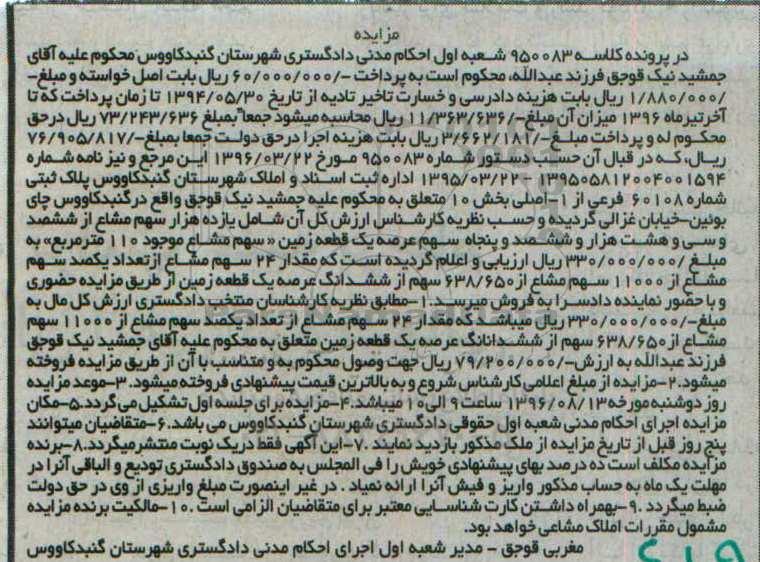 مزایده
در پرونده کلاسه ۹۵۰۰۸۳ شعبه اول احکام مدنی دادگستری شهرستان گنبدکاووس محکوم علیه آقای
جمشید نیک قوجق فرزند عبدالله، محکوم است به پرداخت -/۶۰/۰۰۰/۰۰۰ ریال بابت اصل خواسته و مبلغ-
/۱/۸۸۰/۰۰۰ ریال بابت هزینه دادرسی و خسارت تاخیر تادیه از تاریخ ۱۳۹۴/۰۵/۳۰ تا زمان پرداخت که تا
آخر تیرماه ۱۳۹۶ میزان آن مبلغ-/۱۱/۳۶۳/۶۳۶ ریال محاسبه میشود جمعا" بمبلغ ۷۳/۲۴۳/۶۳۶ ریال در حق
محکوم له و پرداخت مبلغ -/۳/۶۶۲/۱۸۱ ریال بابت هزینه اجرا در حق دولت جمعا بمبلغ-/۷۶/۹۰۵/۸۱۷
ریال، که در قبال آن حسب دستور شماره ۹۵۰۰۸۳ مورخ ۱۳۹۶/۰۳/۲۲ این مرجع و نیز نامه شماره
۱۳۹۵۰۵۸۱۲۰۰۴۰۰۱۵۹۴ - ۱۳۹۵/۰۳/۲۲ اداره ثبت اسناد و املاک شهرستان گنبدکاووس پلاک ثبتی
شماره ۶۰۱۰۸ فرعی از ۱-اصلی بخش ۱۰ متعلق به محکوم علیه جمشید نیک قوجق واقع در گنبدکاووس چای
بوئین-خیابان غزالی گردیده و حسب نظریه کارشناس ارزش کل آن شامل یازده هزار سهم مشاع از ششصد
و سی و هشت هزار و ششصد و پنجاه سهم عرصه یک قطعه زمین « سهم مشاع موجود ۱۱۰ مترمربع» به
مبلغ /۳۳۰/۰۰۰/۰۰۰ ریال ارزیابی و اعلام گردیده است که مقدار ۲۴ سهم مشاع از تعداد یکصد سهم
مشاع از ۱۱۰۰۰ سهم مشاع از ۶۳۸/۶۵۰ سهم از ششدانگ عرصه یک قطعه زمین از طریق مزایده حضوری
و با حضور نماینده دادسرا به فروش میرسد.۱-مطابق نظریه کارشناسان منتخب دادگستری ارزش کل مال به
مبلغ-/۳۳۰/۰۰۰/۰۰۰ ریال میباشد که مقدار ۲۴ سهم مشاع از تعداد یکصد سهم مشاع از ۱۱۰۰۰ سهم
مشاع از ۶۳۸/۶۵۰ سهم از ششدانگ عرصه یک قطعه زمین متعلق به محکوم علیه آقای جمشید نیک قوجق
فرزند عبدالله به ارزش-/۷۹/۲۰۰/۰۰۰ ریال جهت وصول محکوم به و متناسب با آن از طریق مزایده فروخته
میشود.۲-مزایده از مبلغ اعلامی کارشناس شروع و به بالاترین قیمت پیشنهادی فروخته میشود.۳-موعد مزایده
روز دوشنبه مورخه ۱۳۹۶/۰۸/۱۳ ساعت ۹ الی ۱۰ میباشد.۴-مزایده برای جلسه اول تشکیل می گردد.۵-مکان
مزایده اجرای احکام مدنی شعبه اول حقوقی دادگستری شهرستان گنبدکاووس می باشد.۶-متقاضیان میتوانند
پنج روز قبل از تاریخ مزایده از ملک مذکور بازدید نمایند .۷-این آگهی فقط در یک نوبت منتشر میگردد.۸-برنده
مزایده مکلف است ده درصد بهای پیشنهادی خویش را فی المجلس به صندوق دادگستری تودیع و الباقی آنرا در
مهلت یک ماه به حساب مذکور واریز و فیش آنرا ارائه نمیاد . در غیر اینصورت مبلغ واریزی از وی در حق دولت
ضبط میگردد .۹-بهمراه داشتن کارت شناسایی معتبر برای متقاضیان الزامی است .۱۰-مالکیت برنده مزایده
مشمول مقررات املاک مشاعی خواهد بود.
مغربی قوجق - مدیر شعبه اول اجرای احکام مدنی دادگستری شهرستان گنبدکاووس